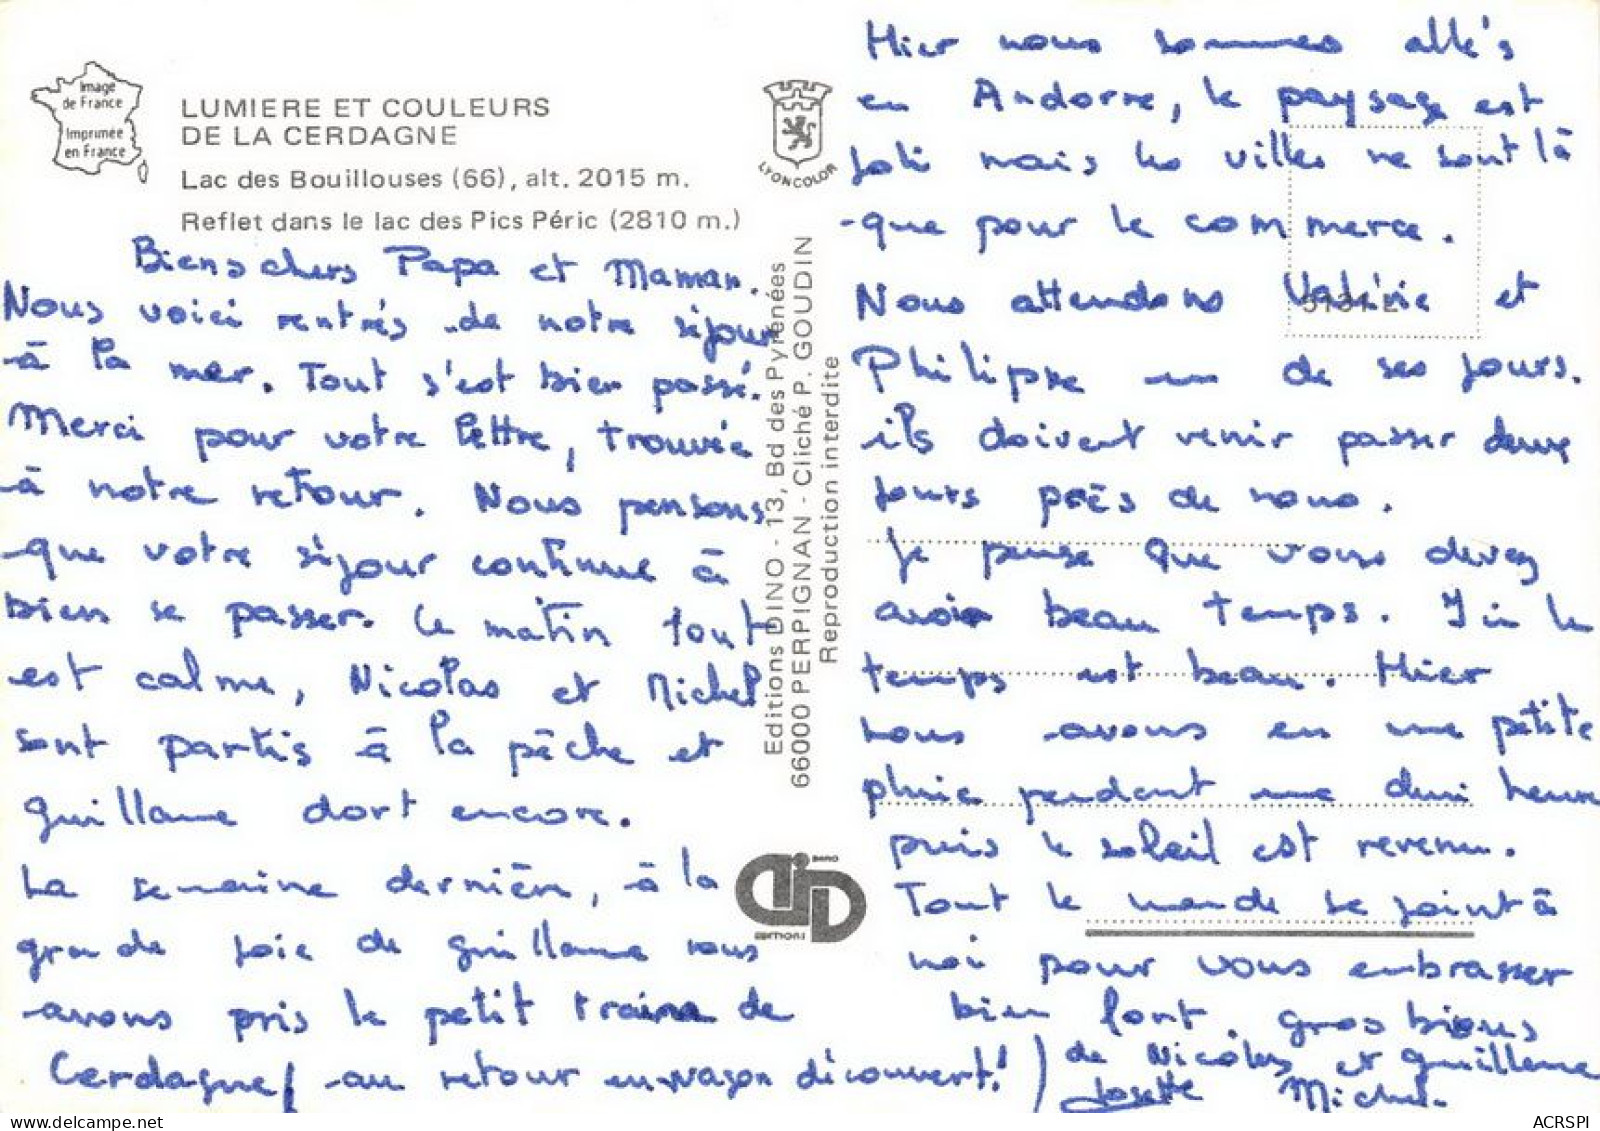 Image
de France
Imprimée
en France
LUMIERE ET COULEURS
DE LA CERDAGNE
Lac des Bouillouses (66), alt. 2015 m.
Reflet dans le lac des Pics Péric (2810 m.)
LYONCOLOR
Biens chers Papa et Maman.
Nous voici rentrés de notre séjour
à la mer. Tout s'est bien passé.
Merci pour votre lettre, trouvée
à notre retour. Nous pensons
que votre séjour continue à
bien se passer. Ce matin tout
est calme, Nicolas et Michel
sont partis à la pêche et
Guillaume dort encore.
La semaine dernière, à la
grande joie de Guillaume nous
avons pris le petit train de
Cerdagne (au retour en wagon découvert!)
Editions DINO - 13, Bd des Pyrénées
66000 PERPIGNAN - Cliché P. GOUDIN
Reproduction interdite
DINO
EDITIONS
Hier nous sommes allés
en Andorre, le paysage est
joli mais les villes ne sont là
que pour le commerce.
Nous attendons Valérie et
Philippe un de ses jours.
ils doivent venir passer deux
jours près de nous.
Je pense que vous devez
avoir beau temps. Ici le
temps est beau. Hier
nous avons eu une petite
pluie pendant une demi heure
puis le soleil est revenu.
Tout le monde se joint à
moi pour vous embrasser
bien fort. gros bisous
de Nicolas et Guillaume
Josette Michel.
ACRSPI